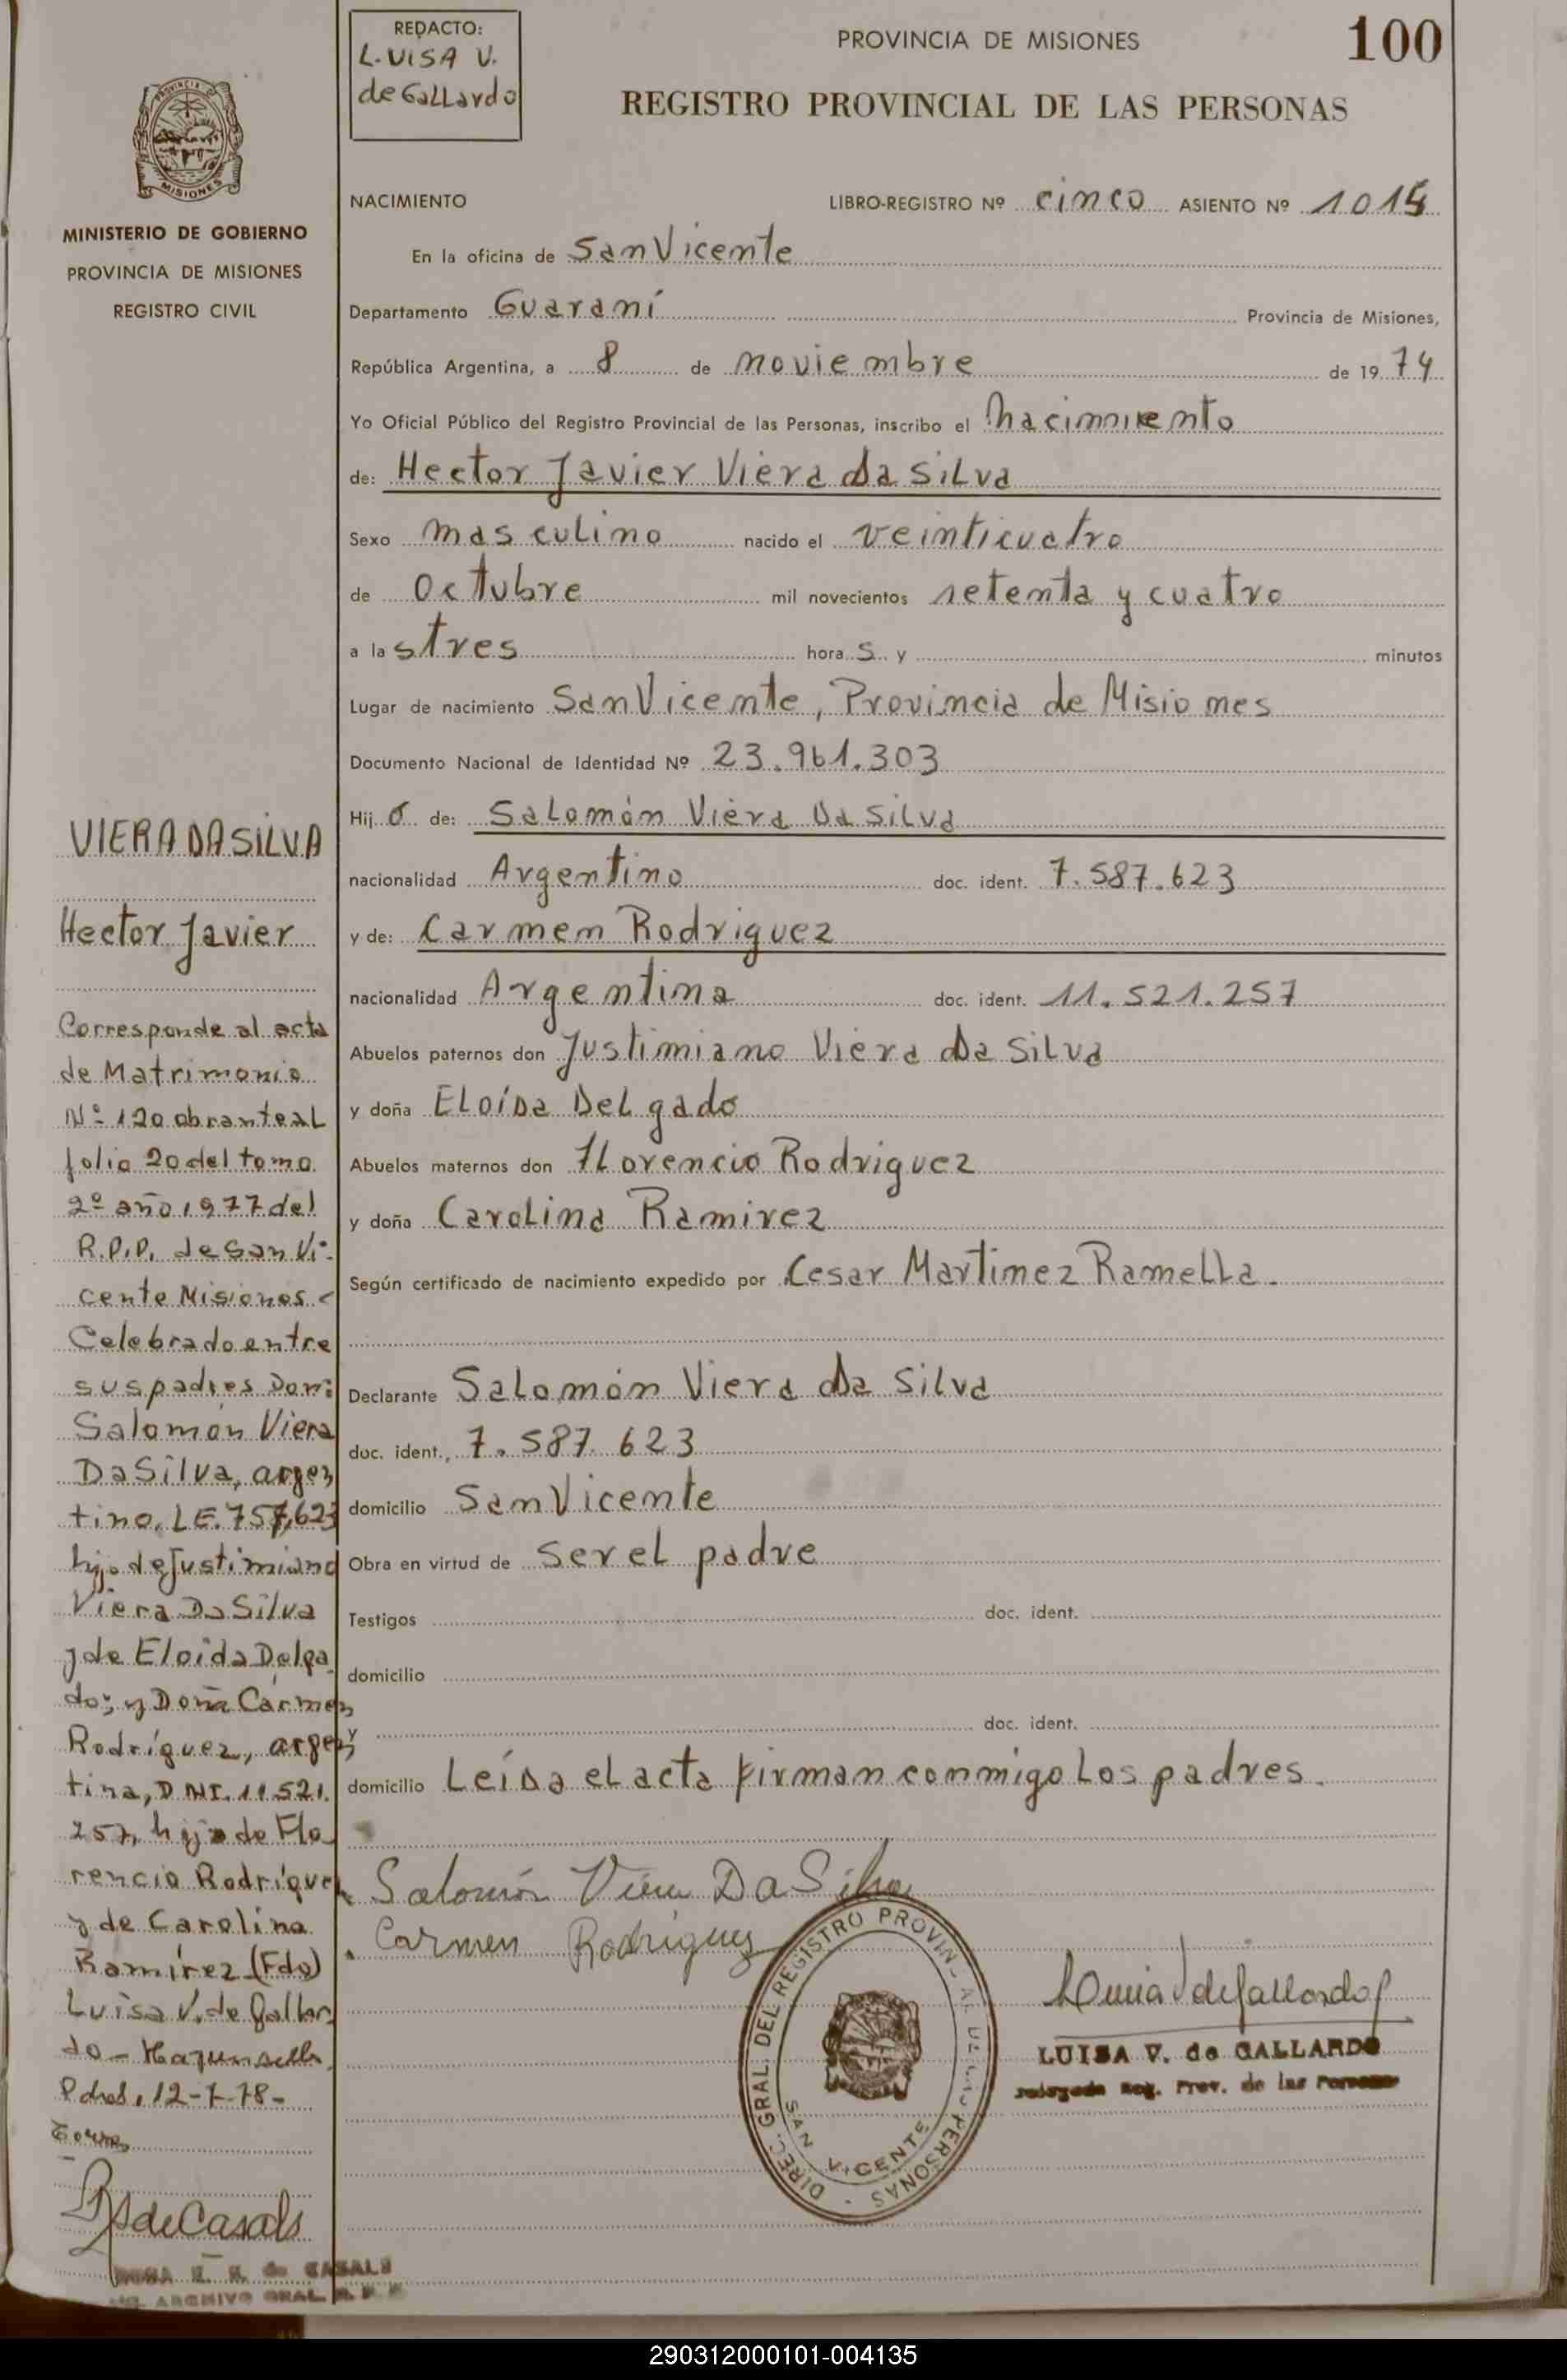 REDACTO:
LUISA V.
de GaLLardo
PROVINCIA DE MISIONES
100
REGISTRO PROVINCIAL DE LAS PERSONAS
PROVINCIA
MISIONES
MINISTERIO DE GOBIERNO
PROVINCIA DE MISIONES
REGISTRO CIVIL
NACIMIENTO LIBRO-REGISTRO Nº cinco ASIENTO Nº
En la oficina de San Vicente
Departamento Guaraní Provincia de Misiones,
República Argentina, a 8 de noviembre de 1974
Yo Oficial Público del Registro Provincial de las Personas, inscribo el nacimiento
de: Hector Javier Viera Da Silva
Sexo masculino nacido el veinticuatro
de octubre mil novecientos setenta y cuatro
a las tres horas y minutos
Lugar de nacimiento San Vicente, Provincia de Misiones
Documento Nacional de Identidad Nº 23.961.303
Hijo de: Salomón Viera Da Silva
nacionalidad Argentino doc. ident. 7.587.623
y de: Carmen Rodriguez
nacionalidad Argentina doc. ident. 11.521.257
Abuelos paternos don Justimiano Viera Da Silva
y doña Eloída Delgado
Abuelos maternos don Florencio Rodriguez
y doña Carolina Ramirez
Según certificado de nacimiento expedido por Cesar Martinez Ramella.
Declarante Salomón Viera Da Silva
doc. ident., 7.587.623
domicilio San Vicente
Obra en virtud de ser el padre
Testigos doc. ident.
domicilio
y doc. ident.
domicilio Leída el acta firman conmigo los padres.
Salomón Viera Da Silva
Carmen Rodriguez
DIREC. GRAL. DEL REGISTRO PROVINCIAL DE LAS PERSONAS
SAN VICENTE
Luisa V de Gallardo
LUISA V. de GALLARDO
Delegada Reg. Prov. de las Personas
VIERA DA SILVA
Hector Javier
Corresponde al acta
de Matrimonio
Nº 120 obrante al
folio 20 del tomo
2º año 1977 del
R.P.P. de San Vi-
cente Misiones
Celebrado entre
sus padres Don:
Salomón Viera
Da Silva, argen
tino, LE. 757,623
hijo de Justimiano
Viera Da Silva
y de Eloida Delga
do; y Doña Cármen
Rodríguez, argen
tina, DNI. 11.521.
257, hija de Flo
rencio Rodríguez
y de Carolina
Ramírez (Fdo)
Luisa V. de Gallar
do-
Pdas, 12-7-78-
de Casals
ROSA de CASALS
ARCHIVO GRAL. R. P. P.
290312000101-004135